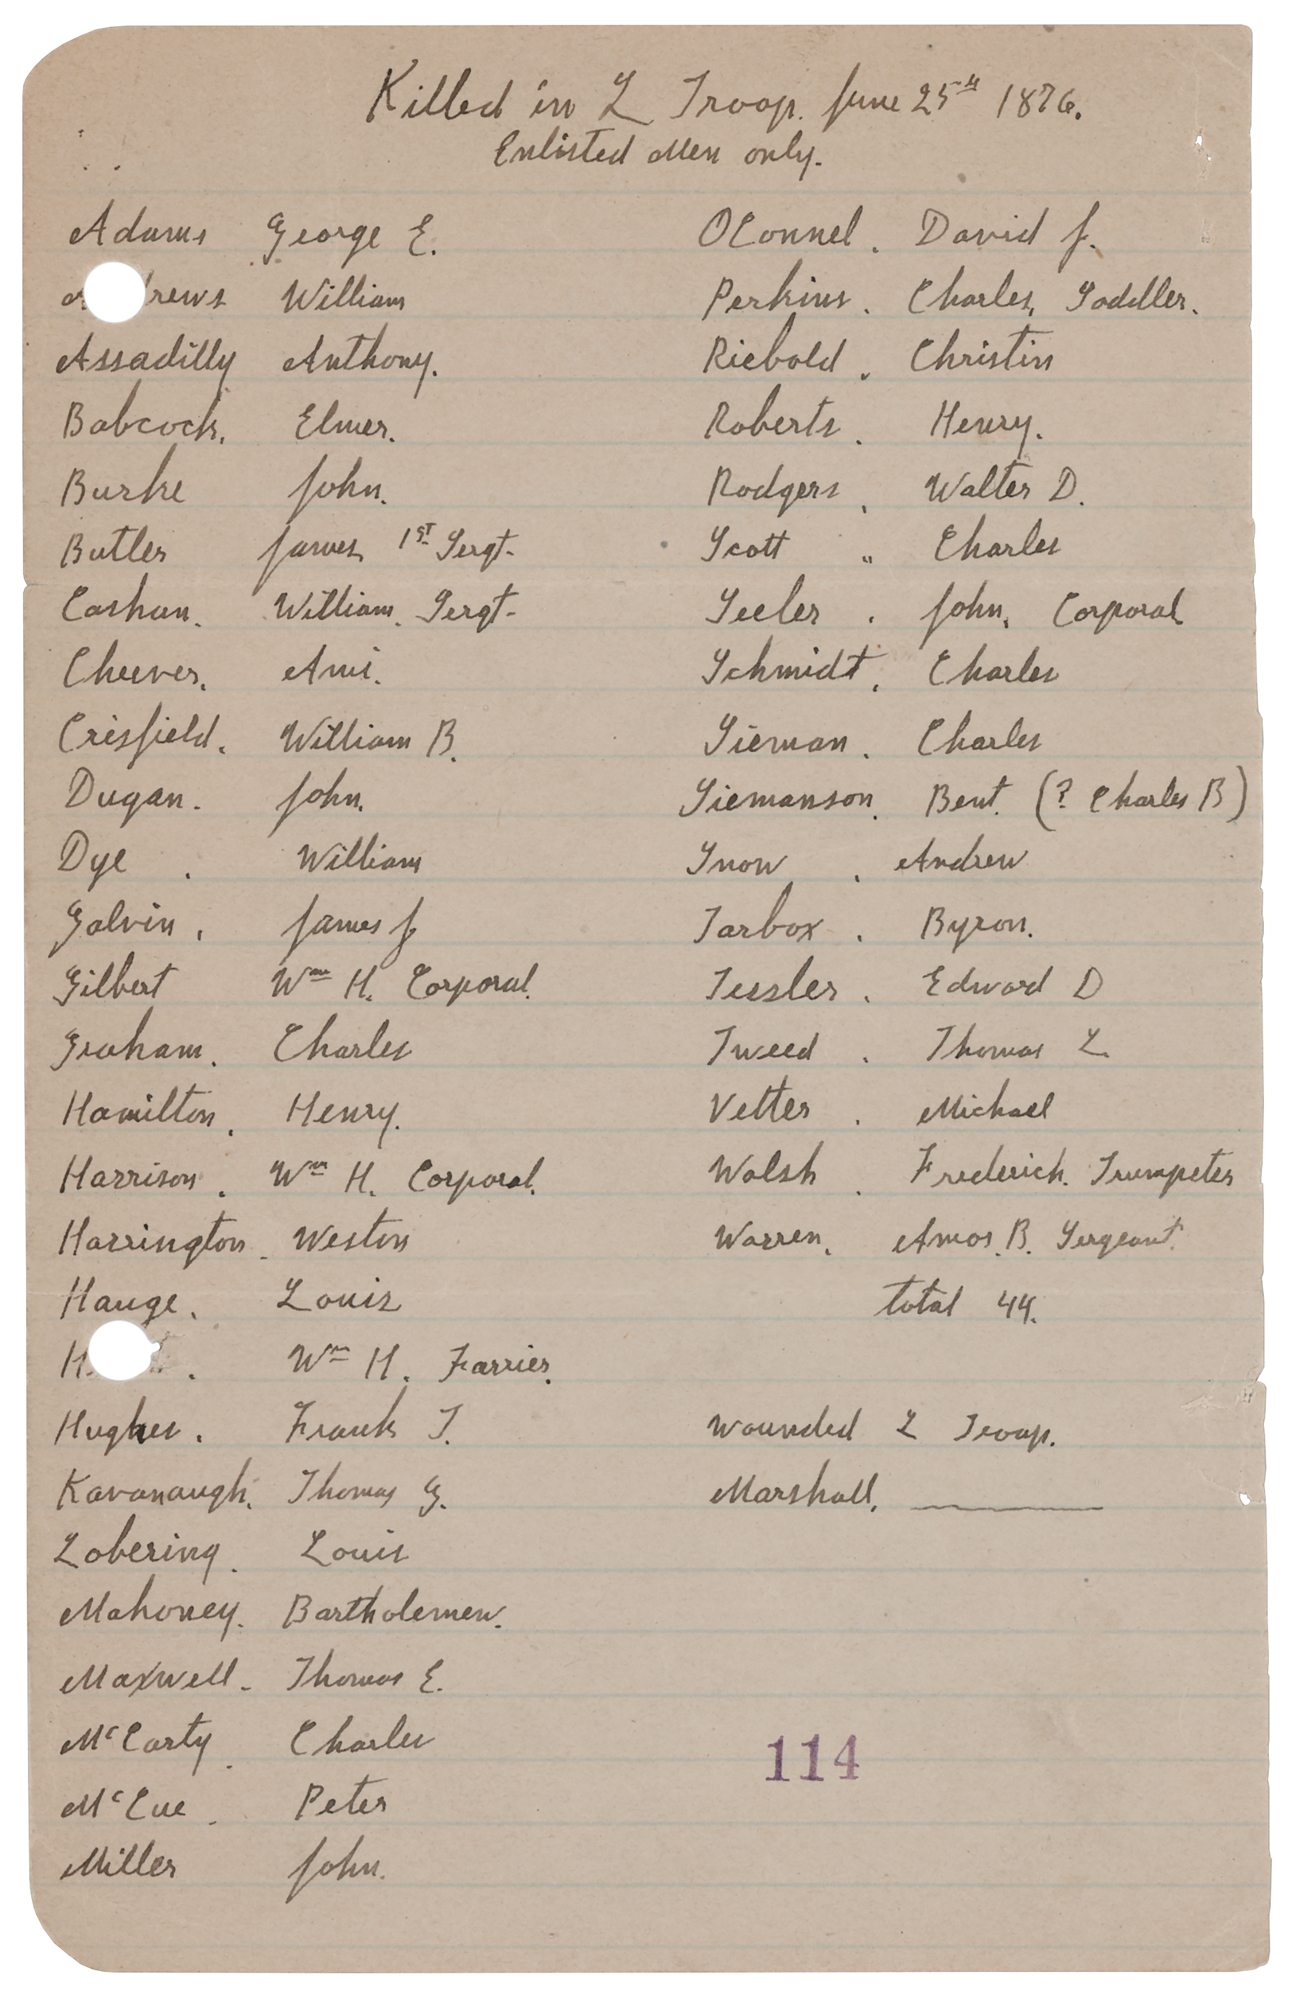 Killed in L Troop. June 25th 1876.
Enlisted Men only.
Adams George E.
William
Assadilly Anthony.
Babcock. Elmer.
Burke John.
Butler James 1st Sergt.
Cashan. William. Sergt.
Cheever. Ami.
Crisfield. William B.
Dugan. John.
Dye . William
Galvin. James J
Gilbert Wm H. Corporal.
Graham. Charles
Hamilton. Henry.
Harrison. Wm H. Corporal.
Harrington. Weston
Hauge. Louis
Wm H. Farrier.
Hughes. Frank T.
Kavanaugh. Thomas G.
Lobering. Louis
Mahoney. Bartholemew.
Maxwell. Thomas E.
McCarty. Charles
McCue . Peter
Miller John.
OConnel. David J.
Perkins. Charles, Saddler.
Riebold. Christin
Roberts. Henry.
Rodgers. Walter D.
Scott " Charles
Seeler . John, Corporal
Schmidt. Charles
Sieman. Charles
Siemanson. Bent. (? Charles B)
Snow . Andrew
Tarbox . Byron.
Tessler . Edward D
Tweed . Thomas L.
Vetter . Michael
Walsh . Frederich. Trumpeter
Warren. Amos. B. Sergeant.
total 44.
Wounded L Troop.
Marshall.
114